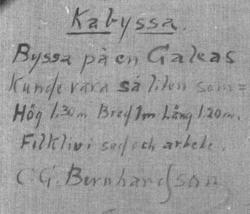 Kabyssa.
Byssa på en Galeas
Kunde vara så liten som=
Hög 1,30m Bred 1m Lång 1.20m.
sed och arbete.
C G. Bernhardson